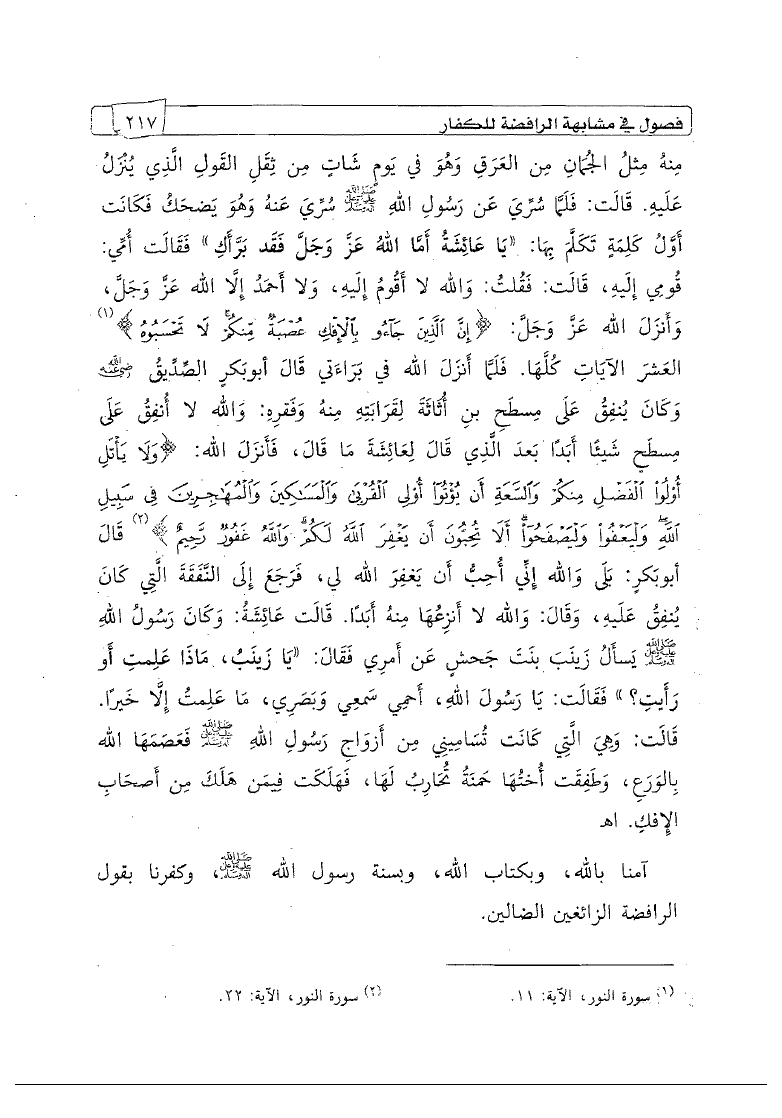 فصول في مشابهة الرافضة للكفار ٢١٧
مِنهُ مِثلُ الجُمَانِ مِن العَرَقِ وَهُوَ في يَومٍ شَاتٍ مِن ثِقَلِ القَولِ الَّذِي يُنْزَلُ
عَلَيهِ. قَالَت: فَلَمَّا سُرِّيَ عَن رَسُولِ اللهِ ﷺ سُرِّيَ عَنهُ وَهُوَ يَضحَكُ فَكَانَت
أَوَّلُ كَلِمَةٍ تَكَلَّمَ بِهَا: «يَا عَائِشَةُ أَمَّا اللهُ عَزَّ وَجَلَّ فَقَد بَرَّأَكِ» فَقَالَت أُمِّي:
قُومِي إِلَيهِ، قَالَت: فَقُلتُ: وَالله لا أَقُومُ إِلَيهِ، وَلا أَحمَدُ إِلَّا الله عَزَّ وَجَلَّ،
وَأَنزَلَ الله عَزَّ وَجَلَّ: ﴿إِنَّ ٱلَّذِينَ جَآءُو بِٱلْإِفْكِ عُصْبَةٌ مِّنكُمْ لَا تَحْسَبُوهُ﴾(١)
العَشَرَ الآيَاتِ كُلَّهَا. فَلَمَّا أَنزَلَ الله في بَرَاءَتي قَالَ أَبوبَكرٍ الصِّدِّيقُ رضي الله عنه
وَكَانَ يُنفِقُ عَلَى مِسطَحِ بنِ أُثَاثَةَ لِقَرَابَتِهِ مِنهُ وَفَقرِهِ: وَالله لا أُنفِقُ عَلَى
مِسطَحٍ شَيئًا أَبَدًا بَعدَ الَّذِي قَالَ لِعَائِشَةَ مَا قَالَ، فَأَنزَلَ الله: ﴿وَلَا يَأْتَلِ
أُوْلُوا۟ ٱلْفَضْلِ مِنكُمْ وَٱلسَّعَةِ أَن يُؤْتُوٓا۟ أُوْلِى ٱلْقُرْبَىٰ وَٱلْمَسَٰكِينَ وَٱلْمُهَٰجِرِينَ فِى سَبِيلِ
ٱللَّهِ ۖ وَلْيَعْفُوا۟ وَلْيَصْفَحُوٓا۟ ۗ أَلَا تُحِبُّونَ أَن يَغْفِرَ ٱللَّهُ لَكُمْ ۗ وَٱللَّهُ غَفُورٌ رَّحِيمٌ﴾(٢) قَالَ
أَبوبَكرٍ: بَلَى وَالله إِنِّي أُحِبُّ أَن يَغفِرَ الله لي، فَرَجَعَ إِلَى النَّفَقَةَ الَّتِي كَانَ
يُنفِقُ عَلَيهِ، وَقَالَ: وَالله لا أَنزِعُهَا مِنهُ أَبَدًا. قَالَت عَائِشَةُ: وَكَانَ رَسُولُ اللهِ
ﷺ يَسأَلُ زَينَبَ بِنتَ جَحشٍ عَن أَمرِي فَقَالَ: «يَا زَينَبُ، مَاذَا عَلِمتِ أَو
رَأَيتِ؟» فَقَالَت: يَا رَسُولَ اللهِ، أَحمِي سَمعِي وَبَصَرِي، مَا عَلِمتُ إِلَّا خَيرًا.
قَالَت: وَهِيَ الَّتِي كَانَت تُسَامِيني مِن أَزوَاجِ رَسُولِ اللهِ ﷺ فَعَصَمَهَا الله
بِالوَرَعِ، وَطَفِقَت أُختُهَا حَمنَةُ تُحَارِبُ لَهَا، فَهَلَكَت فِيمَن هَلَكَ مِن أَصحَابِ
الإِفكِ. اهـ
آمنا بالله، وبكتاب الله، وبسنة رسول الله ﷺ، وكفرنا بقول
الرافضة الزائغين الضالين.
(١) سورة النور، الآية: ١١. (٢) سورة النور، الآية: ٢٢.